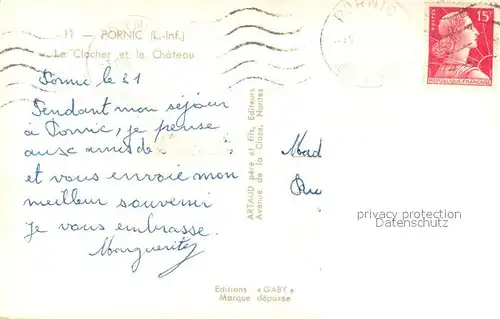 11 - PORNIC (L.-Inf.)
Le Clocher et le Château
Pornic le 21
Pendant mon séjour
à Pornic, je pense
aux amis de
et vous envoie mon
meilleur souvenir
Je vous embrasse.
Marguerite
ARTAUD père et fils, Editeurs
Avenue de la Close, Nantes
Editions « GABY »
Marque déposée
PORNIC
PORNIC
POSTES
15F
REPUBLIQUE FRANÇAISE
Mad
privacy protection
Sammlerstick.com